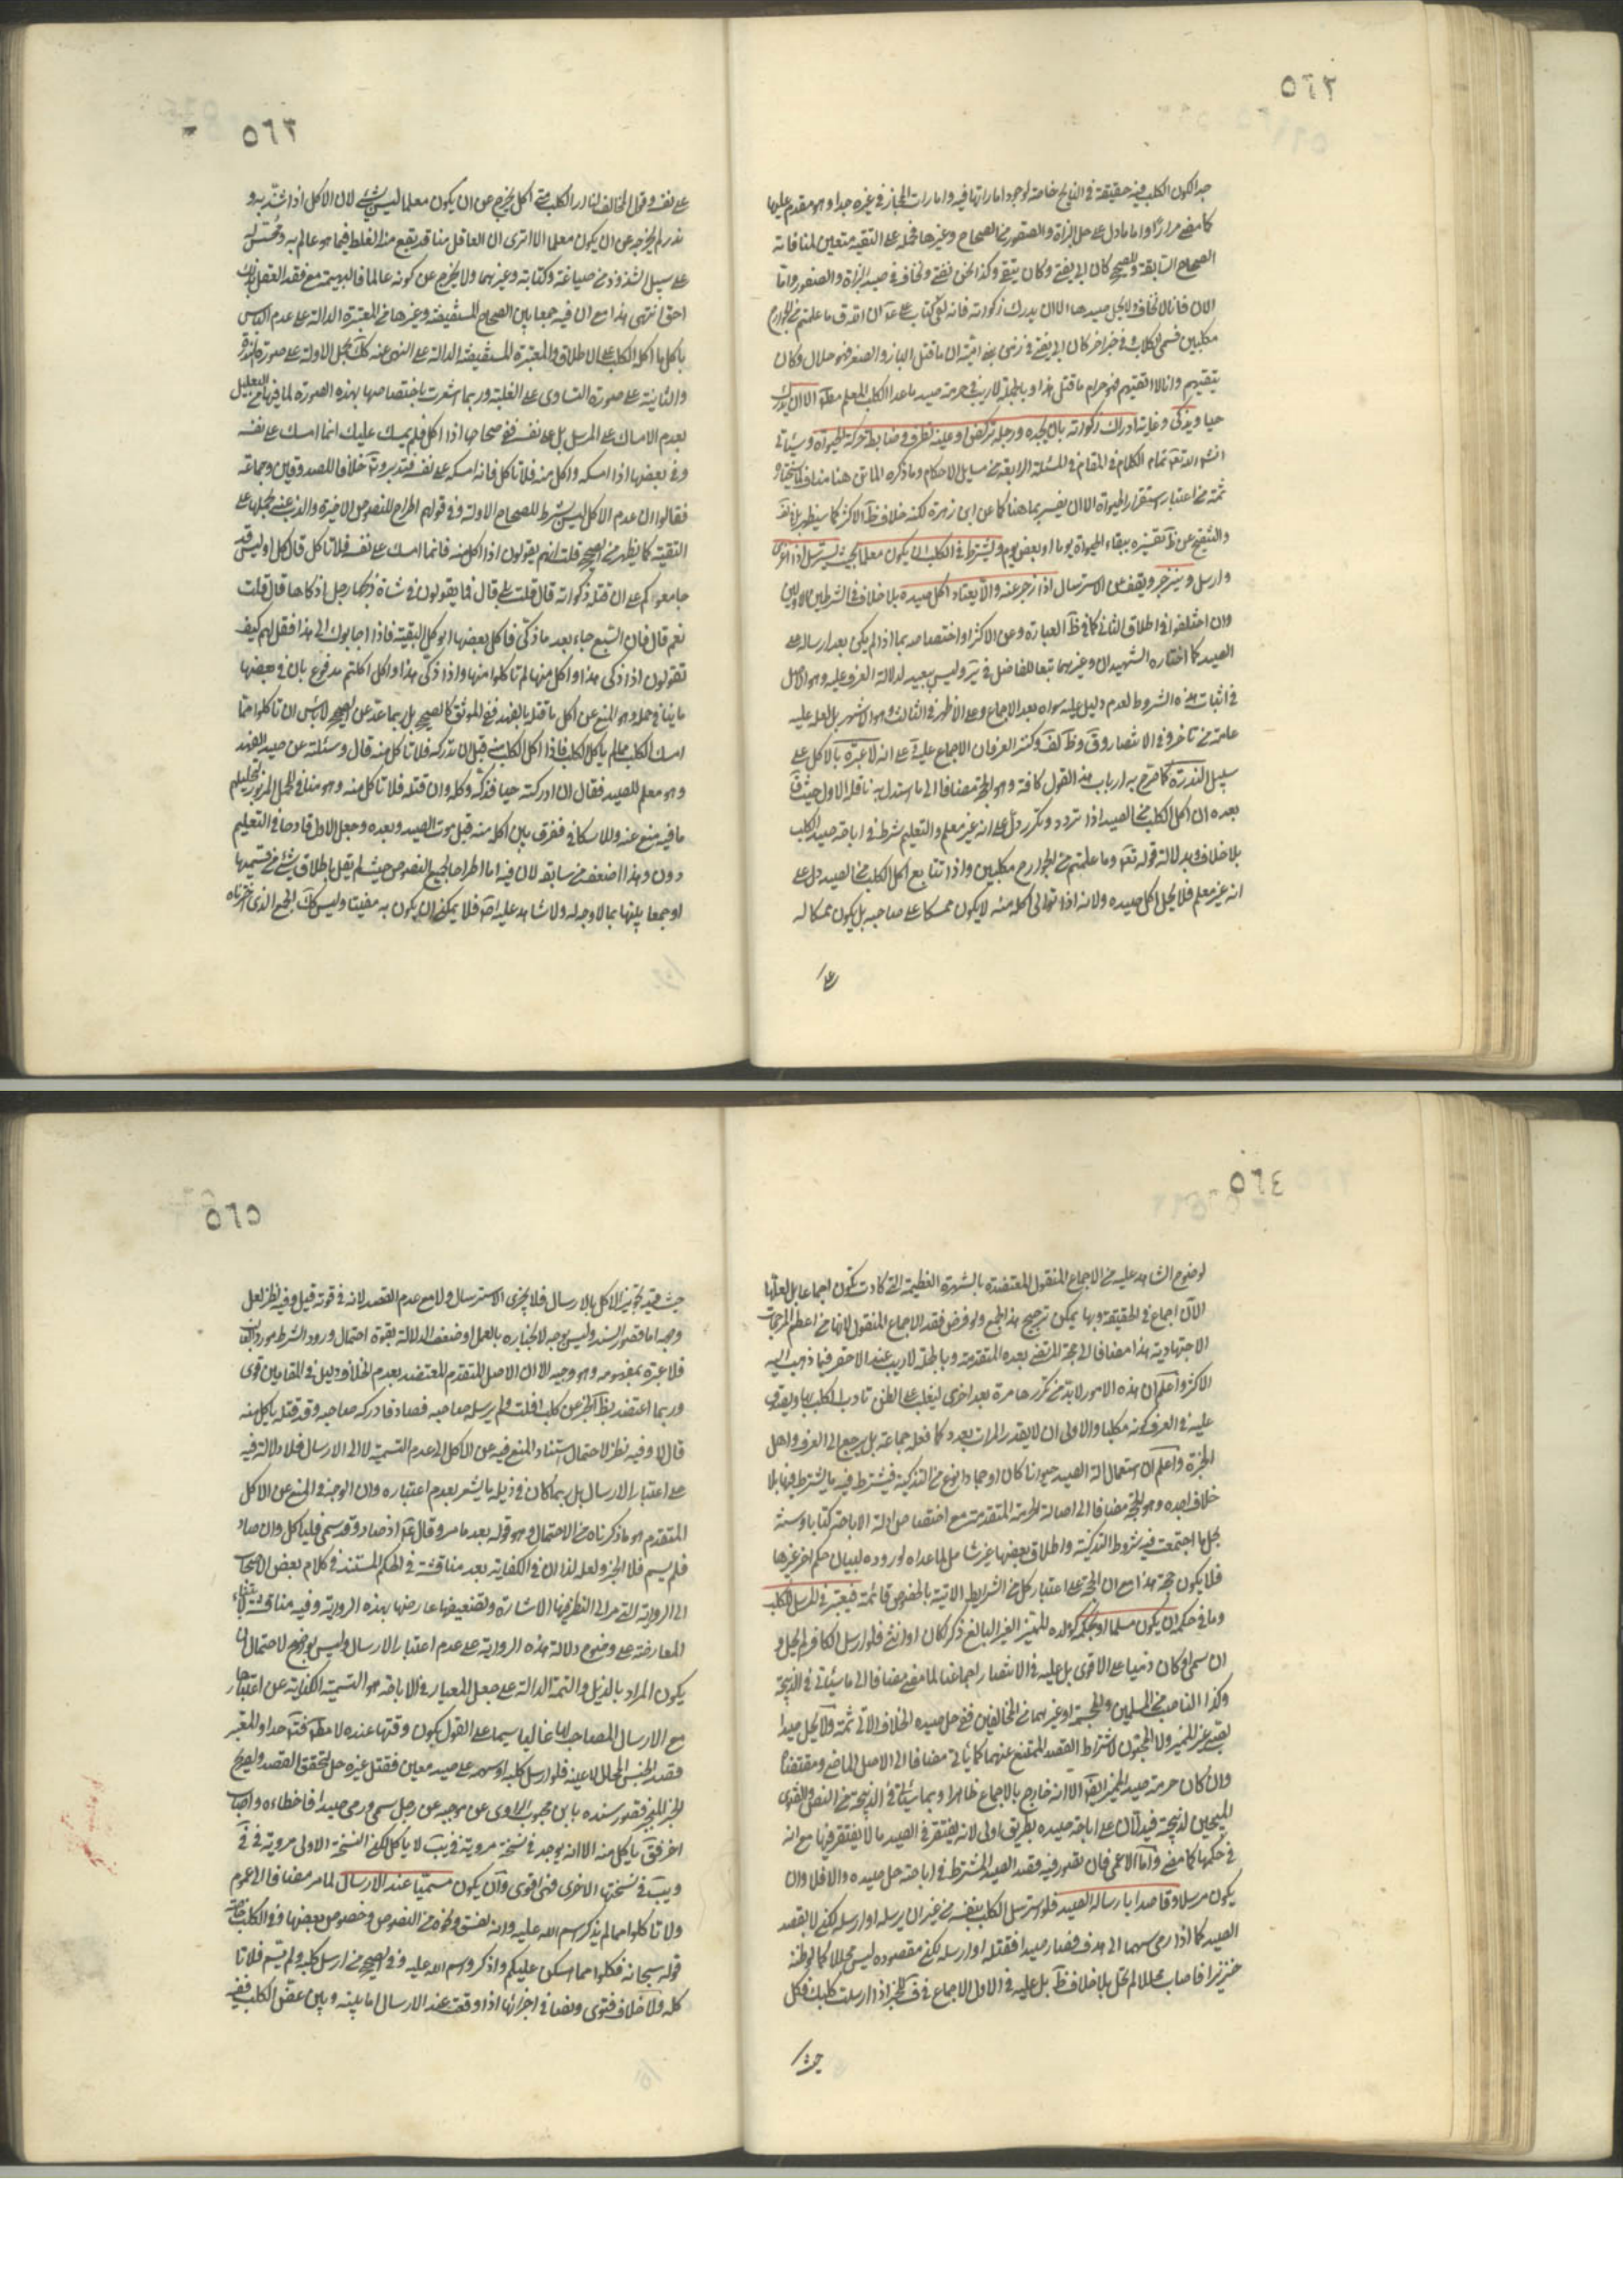 ٥٦٢
جدا لكون الكلب فيه حقيقة في النابح خاصة لوجود اماراتها فيه وامارات المجاز في غيره جدا وهو مقدم عليها
كما مضى مرارًا واما ما دل على حل البزاة والصقور من الصحاح وغيرها فحمله على التقية متعين لمنافاته
الصحاح السابقة وللصحيح كان ابي يفتي وكان يتقي وكذا نحن نفتي ونخاف في صيد البزاة والصقور واما
الان فانا لا نخاف ولا يحل صيدها الا ان يدرك ذكوته فانه لفي كتاب علي ع ان الله ق ما علمتم من الجوارح
مكلبين فسمى الكلاب وفي خبر اخر كان ابي يفتي في زمن بني امية ان ما قتل الباز والصقر فهو حلال وكان
يتقيهم وانا لا اتقيهم فهو حرام ما قتل هذا وبالجملة لا ريب في حرمة صيد ما عدا الكلب المعلم مط الا ان يدرك
حيا ويذكى وغايته ادراك ذكوته بان يجده ورجله تركض او عينه تطرف وضابطه حركة الحيوة وسيأتي
انشاء الله تعه تمام الكلام في المقام في المسئلة الرابعة من مسايل الاحكام وما ذكره الماتن هنا مناف لما يختاره
ثمة من اعتبار استقرار الحيوة الا ان يفسر بما هنا كما عن ابن زهرة لكنه خلاف ظ الاكثر كما سيظهر
والتنقيح عن ظ تفسيره ببقاء الحيوة يوما او بعض يوم ويشترط في الكلب ان يكون معلما بحيث يسترسل اذا اغرى
وارسل وينزجر ويقف عن الاسترسال اذا زجر عنه والا يعتاد اكل صيده بلا خلاف في الشرطين الاولين
وان اختلفوا في اطلاق الثاني كما في ظ العبارة وعن الاكثر او اختصاصه بما اذا لم يكن بعد ارساله على
الصيد كما اختاره الشهيدان وغيرهما تبعا للفاضل في ير وليس ببعيد لدلالة العرف عليه وهو الاصل
في اثبات هذه الشروط لعدم دليل عليه سواه بعد الاجماع وعلى الاظهر في الثالث وهو الاشهر بل لعله عليه
عامة من تاخر وفي الانتصار وق وظ كف وكنز العرفان الاجماع عليه على انه لا عبرة بالاكل على
سبيل الندرة كما صرح به ارباب هذا القول كافة وهو الحجة مضافا الى ما استدل به ناقله الاول حيث قا
بعده ان اكل الكلب من الصيد اذا تردد وتكرر دل على انه غير معلم والتعليم شرط في اباحة صيد الكلب
بلا خلاف وبدلالة قوله تعه وما علمتم من الجوارح مكلبين واذا تتابع اكل الكلب من الصيد دل على
انه غير معلم فلا يحل اكل صيده ولانه اذا توالى اكله منه لا يكون ممسكا على صاحبه بل يكون ممسكا له
على
٥٦٣
على نفسه وقول المخالف لنا ان الكلب متى اكل يخرج من ان يكون معلما ليس بشئ لان الاكل اذا شذ به و
ندر لم يخرجه عن ان يكون معلما الا ترى ان العاقل منا قد يقع منه الغلط فيما هو عالم به ومحسن له
على سبيل الشذوذ من صياغة وكتابة وغيرهما ولا يخرج عن كونه عالما فالبهيمة مع فقد العقل بذلك
احق انتهى هذا مع ان فيه جمعا بين الصحاح المستفيضة وغيرها من المعتبرة الدالة على عدم الباس
باكل ما اكله الكلب على الاطلاق والمعتبرة المستفيضة الدالة على النهي عنه كك بحمل الاولة على صورة الندرة
والثانية على صورة التساوى على الغلبة وربما اشعرت باختصاصها بهذه الصورة لما فيها من التعليل
بعدم الامساك على المرسل بل على نفسه ففي صحاحها اذا اكل فلم يمسك عليك انما امسك على نفسه
وفي بعضها اذا امسكه واكل منه فلا تاكل فانه امسكه على نفسه فتدبر خلافا للصدوقين وجماعة
فقالوا ان عدم الاكل ليس بشرط للصحاح الاولة وفي قولهم اطراح للنصوص الاخيرة والذب عنه بحملها على
التقية كما يظهر من الصحيح قلت انهم يقولون اذا اكل منه فانما امسك على نفسه فلا تاكل قال كل او ليس قد
جامعوكم على ان قتله ذكوته قال قلت بلى قال فما يقولون في شاة ذبحها رجل اذكاها قال قلت
نعم قال فان السبع جاء بعد ما ذكى فاكل بعضها ايوكل البقية فاذا اجابوك الى هذا فقل لهم كيف
تقولون اذا ذكى هذا واكل منها لم تاكلوا منها واذا ذكى هذا واكل اكلتم مدفوع بان في بعضها
ما ينافي حمله وهو المنع عن اكل ما قتله الفهد ففي الموثق كالصحيح بل ربما عد من الصحيح لا باس ان تاكلوا مما
امسك الكلب ما لم ياكل الكلب فاذا اكل الكلب منه قبل ان تدركه فلا تاكل منه قال وسئلته عن صيد الفهد
وهو معلم للصيد فقال ان ادركته حيا فذكه وكله وان قتله فلا تاكل منه وهو مناف للحمل المزبور لتحليلهم
ما فيه منع عنه وللاسكافي ففرق بين اكله منه قبل موت الصيد وبعده وجعل الاول قادحا في التعليم
دون وهذا اضعف من سابقه لان فيه اما اطراحا لجميع النصوص حيث لم يقل باطلاق شئ من قسميها
او جمعا بينها بما لا وجه له ولا شاهد عليه اصه فلا يمكن ان يكون به مفيتا وليس كك الجمع الذي اخترناه
٥٦٤
لوضوح الشاهد عليه من الاجماع المنقول المعتضدة بالشهرة العظيمة التي كادت تكون اجماعا بل لعلها
الان اجماع في الحقيقة وبها يمكن ترجيح هذا الجمع ولو فرض فقد الاجماع المنقول لانها من اعظم المرجحات
الاجتهادية هذا مضافا الى حجة المرتضى بعده المتقدمة وبالجملة لا ريب عند الاحقر فيما ذهب اليه
الاكثر واعلم ان هذه الامور لا بد من تكررها مرة بعد اخرى ليغلب على الظن تادب الكلب بها ويصدق
عليه في العرف كونه مكلبا والاولى ان لا يقدر المرات بعدد كما فعله جماعة بل يرجع الى العرف واهل
الخبرة واعلم ان استعمال الة الصيد حيوانا كان او جمادا نوع من التذكية فيشترط فيه ما يشترط فيها بلا
خلاف اجده وهو الحجة مضافا الى اصالة الحرمة المتقدمة مع اختصاص ادلة الاباحة كتابا وسنة
بحل ما اجتمعت فيه شروط التذكية واطلاق بعضها غير شامل لما عداه لوروده لبيان حكم اخر غيرها
فلا يكون حجة هذا مع ان الحجة على اعتبار كل من الشرايط الاتية بالخصوص قائمة فيعتبر في المرسل للكلب
وما في حكمه ان يكون مسلما او بحكمه كولده المميز الغير البالغ ذكرا كان او انثى فلو ارسل الكافر لم يحل و
ان سمى او كان ذميا على الاقوى بل عليه في الانتصار اجماعنا لما مضى مضافا الى ما سيأتي في الذبيحة
وكذا الناصب من المسلمين والمجسمة او غيرهما من المخالفين ففي حل صيده الخلاف الاتي ثمة ولا يحل صيد
الصبي غير المميز ولا المجنون لاشتراط القصد الممتنع عنهما كما يأتي مضافا الى الاصل الماضي ومقتضاه
وان كان حرمة صيد المميز ايضه الا انه خارج بالاجماع ظاهرا وبما سيأتي في الذبيحة من النص والفتوى
المبيحين لذبيحة فيدلان على اباحة صيده بطريق اولى لانه يفتقر في الصيد ما لا يفتقر فيها مع انه
في حكمها كما مضى واما الاعمى فان تصور فيه قصد الصيد المشترط في اباحته حل صيده والا فلا وان
يكون مرسلا وقاصدا بارساله الصيد فلو استرسل الكلب بنفسه من غير ان يرسله او ارسله لكن لا بقصد
الصيد كما اذا رمى سهما الى هدف فصار صيدا فقتله او ارسله لكن مقصوده ليس محللا كما لو ظنه
خنزيرا فاصاب محللا لم يحل بلا خلاف ظ بل عليه في الاول الاجماع في ف للخبر اذا ارسلت كلبك فكل
حيث
٥٦٥
حيث قيد تجويز الاكل بالارسال فلا يجزى الاسترسال ولا مع عدم القصد لانه في قوته قيل وفيه نظر لعل
وجهه اما قصور السند وليس بوجه لانجباره بالعمل او ضعف الدلالة بقوة احتمال ورود الشرط مورد الغالب
فلا عبرة بمفهومه وهو وجيه الا ان الاصل المتقدم المعتضد بعدم الخلاف دليل في المقامين قوى
وربما اعتضد بظ الخبر عن كلب افلت ولم يرسله صاحبه فصاد فادركه صاحبه وقد قتله ياكل منه
قال لا وفيه نظر لاحتمال استناد المنع فيه عن الاكل الى عدم التسمية لا الى الارسال فلا دلالة فيه
على اعتبار الارسال بل ربما كان في ذيله ما يشعر بعدم اعتباره وان الوجه في المنع عن الاكل
المتقدم هو ما ذكرناه من الاحتمال وهو قوله بعد ما مر وقال ع اذا صاد وقد سمى فلياكل وان صاد
فلم يسم فلا الخبر ولعله لذا ان في الكفاية بعد مناقشة في الحكم المستند في كلام بعض الاصحاب
الى الرواية التي مر الى النظر فيها الاشارة وتضعيفها عارضها بهذه الرواية وفيه مناقشة لابتناء
المعارضة على وضوح دلالة هذه الرواية على عدم اعتبار الارسال وليس بوضوح لاحتمال ان
يكون المراد بالذيل والتتمة الدالة على جعل المعيار في الاباقة هو التسمية الكناية عن اعتبارها
مع الارسال المصاحب لها غالبا سيما على القول بكون وقتها عنده لا مط كما فتاه جدا والمعتبر
قصد الجنس المحلل لا عينه فلو ارسل كلبه او سهمه على صيد معين فقتل غيره حل لتحقق القصد ولصريح
الخبر المنجبر قصور سنده بابن محبوب الراوى عن موجبه عن رجل سمى ورمى صيدا فاخطاءه واصاب
اخر فق ياكل منه الا انه يوجد في نسخة مروية في يب لا ياكل لكن النسخة الاولى مروية في في
ويب في نسختها الاخرى فهى اقوى وان يكون مسميا عند الارسال لما مر مضافا الى عموم
ولا تاكلوا مما لم يذكر اسم الله عليه وانه لفسق ونحوه من النصوص وخصوص بعضها وفي الكلب خاصة
قوله سبحانه فكلوا مما امسكن عليكم واذكروا اسم الله عليه وفي الصحيح من ارسل كلبه ولم يسم فلا تا
كله ولا خلاف فتوى ونصا في اجزائها اذا وقعت عند الارسال اما بينه وبين عض الكلب ففيه